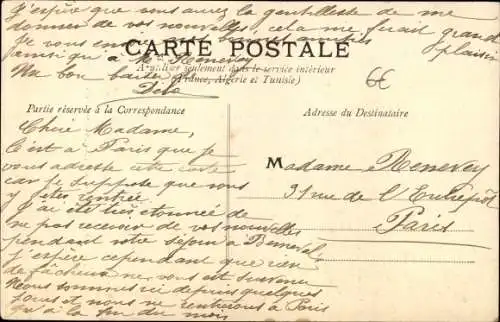 J'espère que vous aurez la gentillesse de me
donner de vos nouvelles, cela me fera grand
plaisir
Je vous envoie
ainsi qu'à M. Renevey
un bon baiser
CARTE POSTALE
A utiliser seulement dans le service intérieur
(France, Algérie et Tunisie)
6€
Partie réservée à la Correspondance
Adresse du Destinataire
Chère Madame,
C'est à Paris que je
vous adresse cette carte
car je suppose que vous
y êtes rentrée.
J'ai été très étonnée de
ne pas recevoir de vos nouvelles
pendant votre séjour à
j'espère cependant que rien
de fâcheux ne vous est survenu
Nous sommes ici depuis quelques
jours et nous ne rentrerons à Paris
qu'à la fin du mois
Madame Renevey
31 rue de l'Entrepôt
Paris